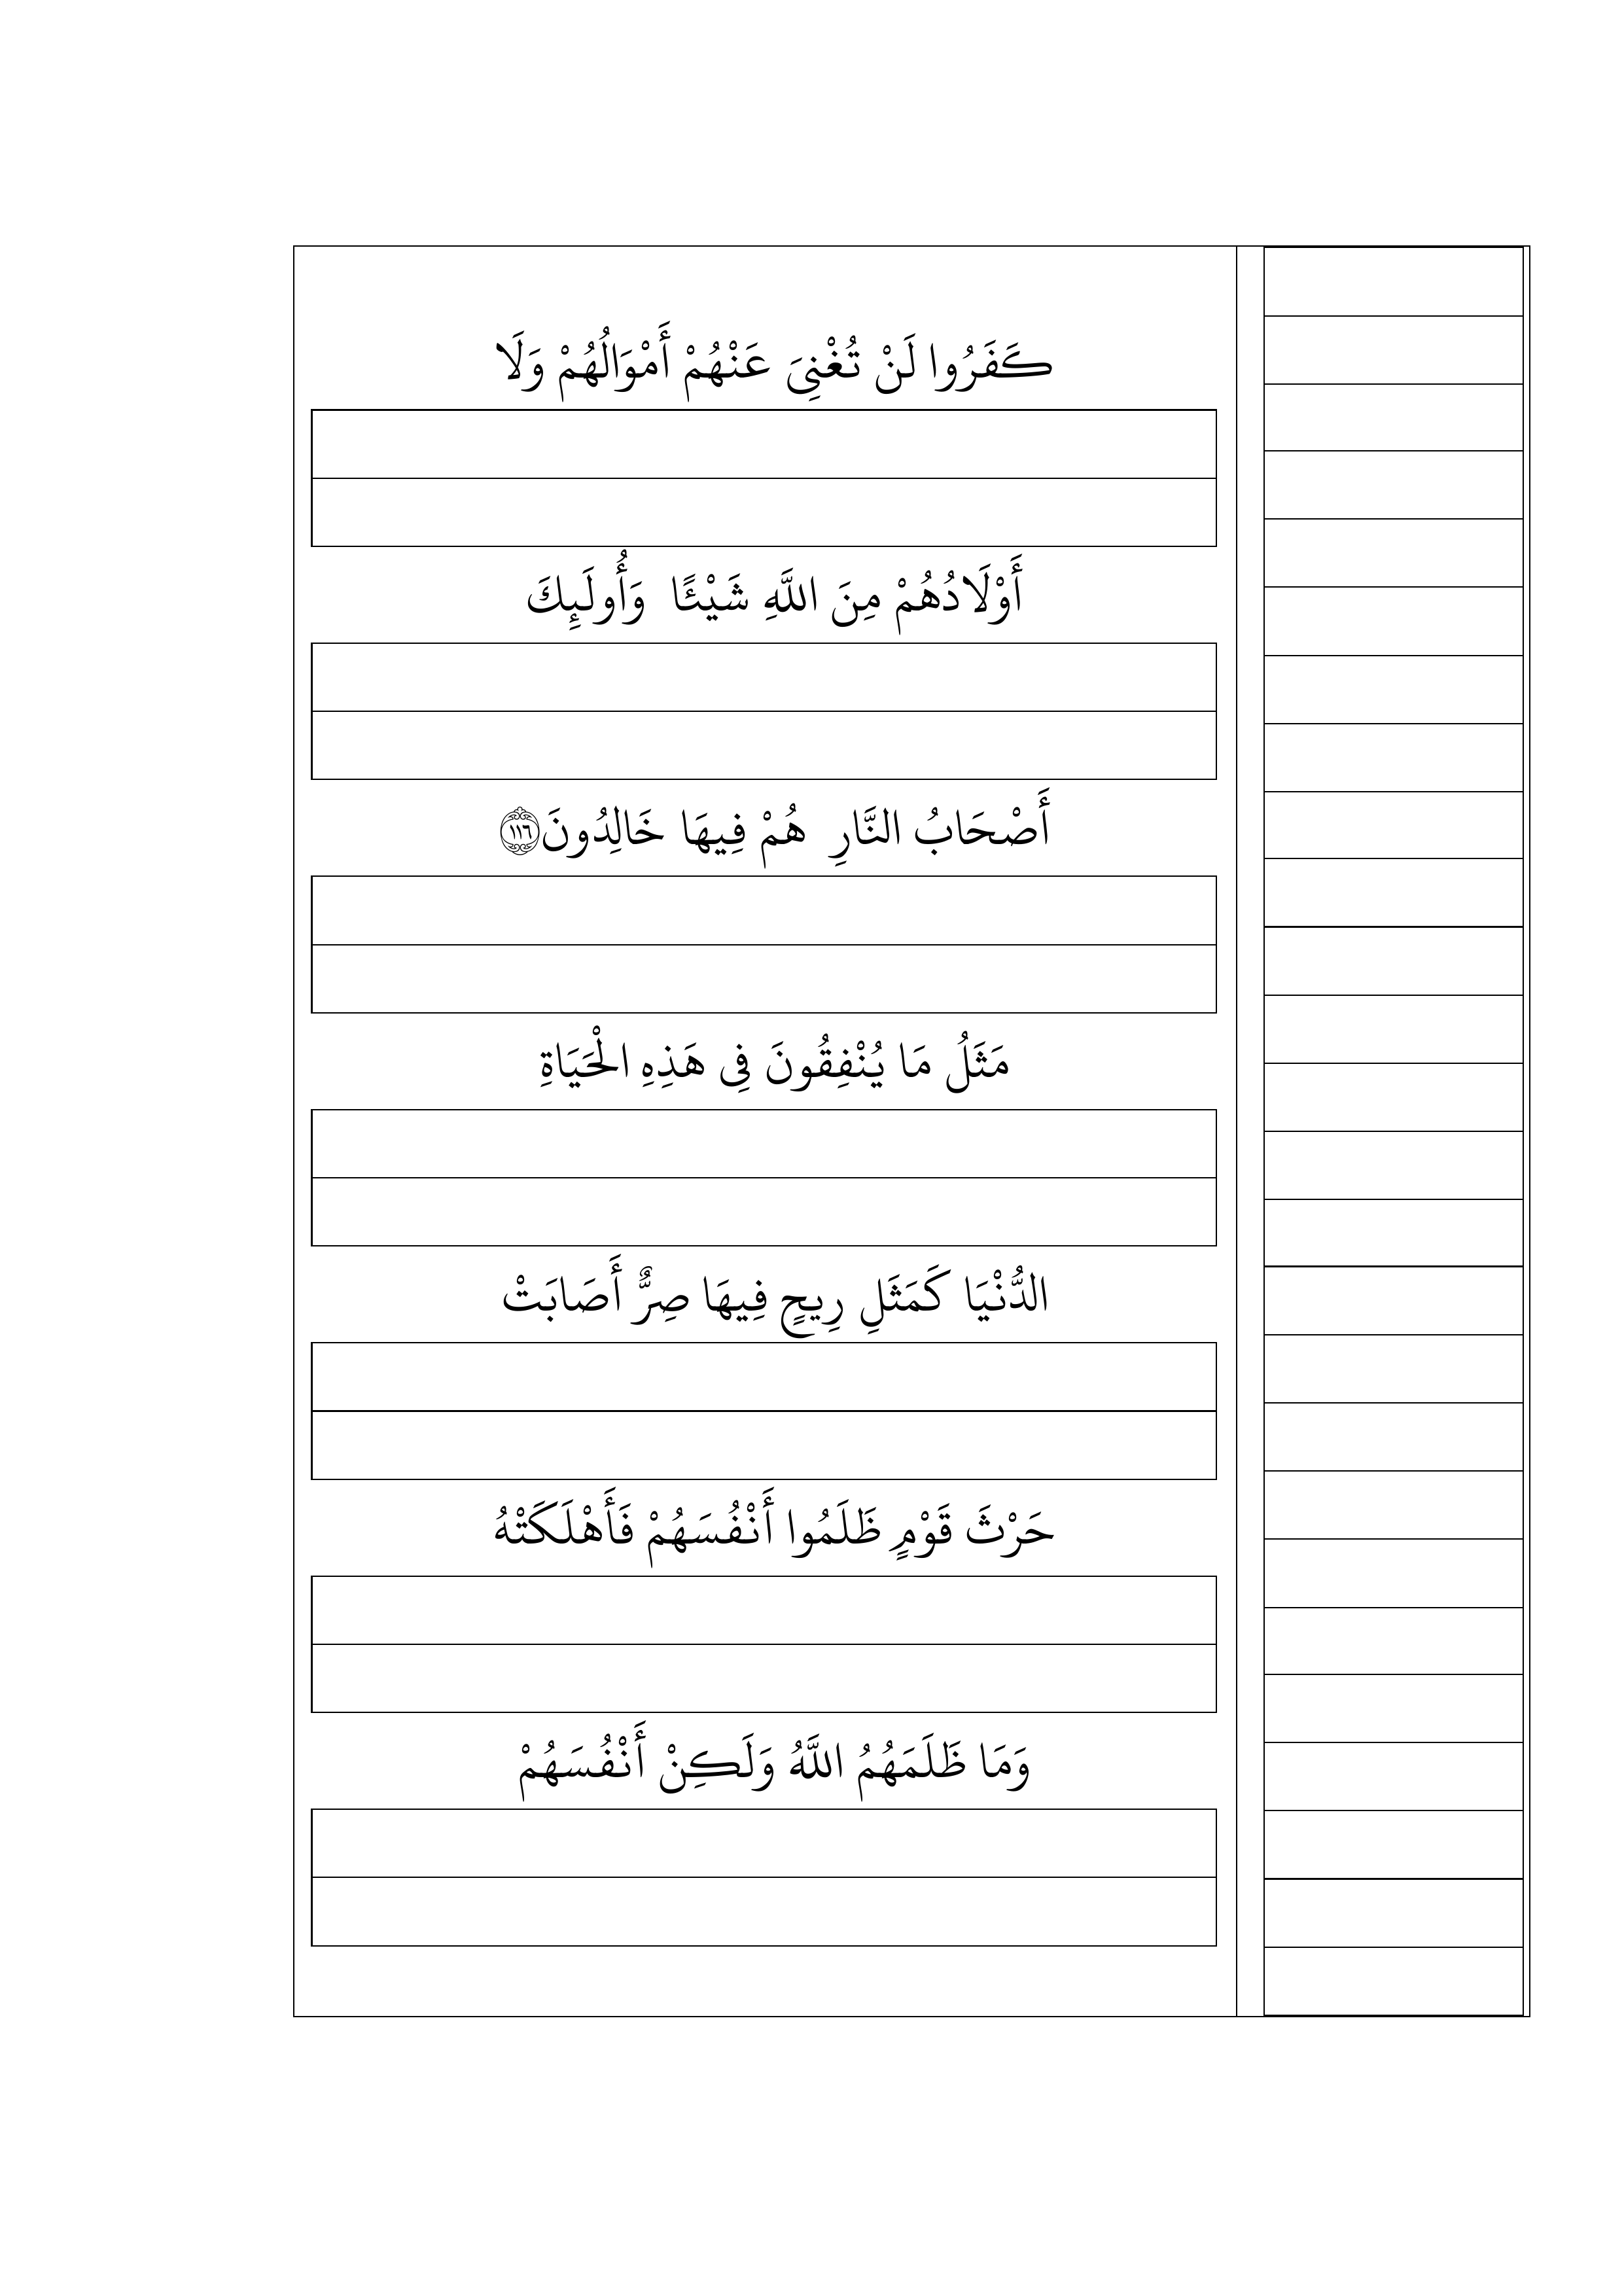 كَفَرُوا لَنْ تُغْنِىَ عَنْهُمْ أَمْوَالُهُمْ وَلَا
أَوْلَادُهُمْ مِنَ اللَّهِ شَيْئًا وَأُولَـٰئِكَ
أَصْحَابُ النَّارِ هُمْ فِيهَا خَالِدُونَ ١١٦
مَثَلُ مَا يُنْفِقُونَ فِى هَذِهِ الْحَيَاةِ
الدُّنْيَا كَمَثَلِ رِيحٍ فِيهَا صِرٌّ أَصَابَتْ
حَرْثَ قَوْمٍ ظَلَمُوا أَنْفُسَهُمْ فَأَهْلَكَتْهُ
وَمَا ظَلَمَهُمُ اللَّهُ وَلَكِنْ أَنْفُسَهُمْ